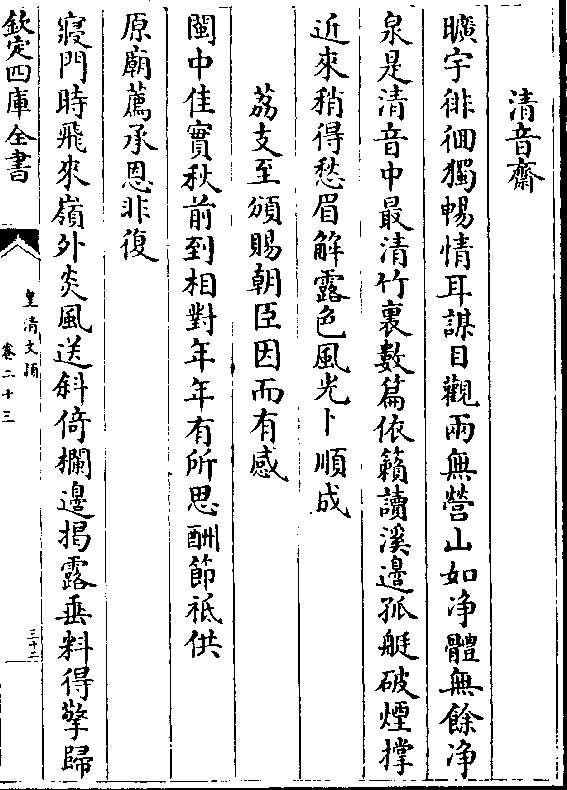 清音齋
曠宇徘徊獨暢情耳謀目觀兩無營山如净體無餘净
泉是清音中最清竹裏數篇依籟讀溪邊孤艇破煙撑
近來稍得愁眉解露色風光卜順成
荔支至頒賜朝臣因而有感
閩中佳實秋前到相對年年有所思酬節祗供
原廟薦承恩非復
寢門時飛來嶺外炎風送斜倚欄邊揭露垂料得擎歸
欽定四庫全書
皇清文頴
卷二十三
三十二